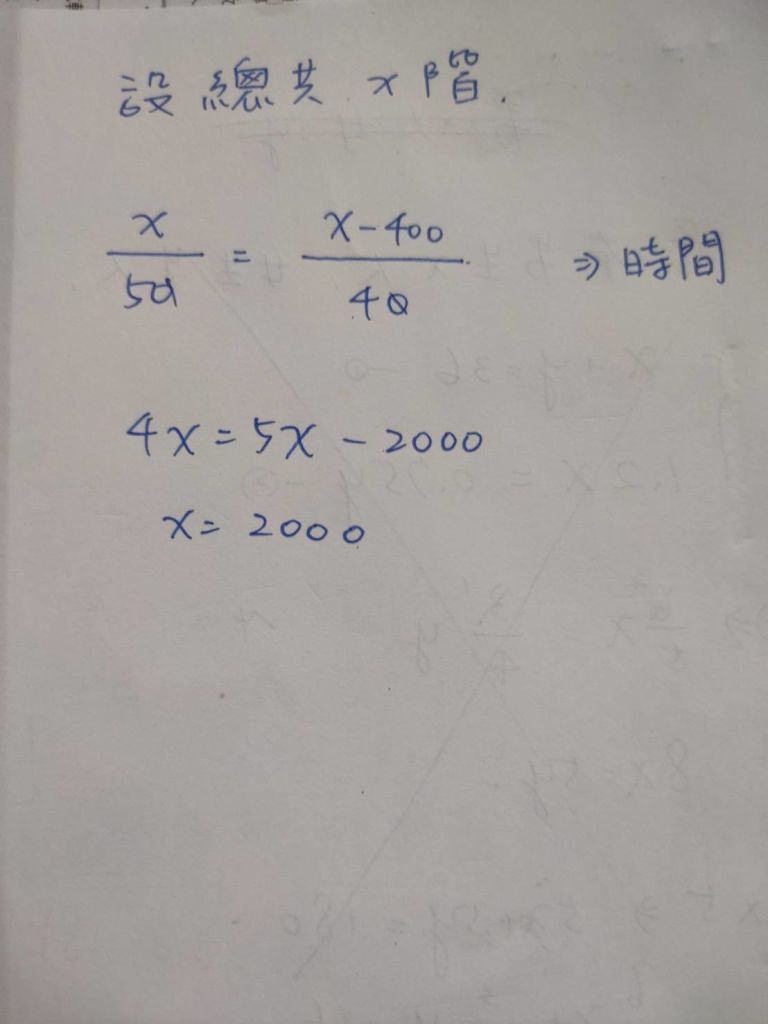 設總共 x 階.
x/50 = x-400/40 ⇒ 時間
4x = 5x - 2000
x = 2000